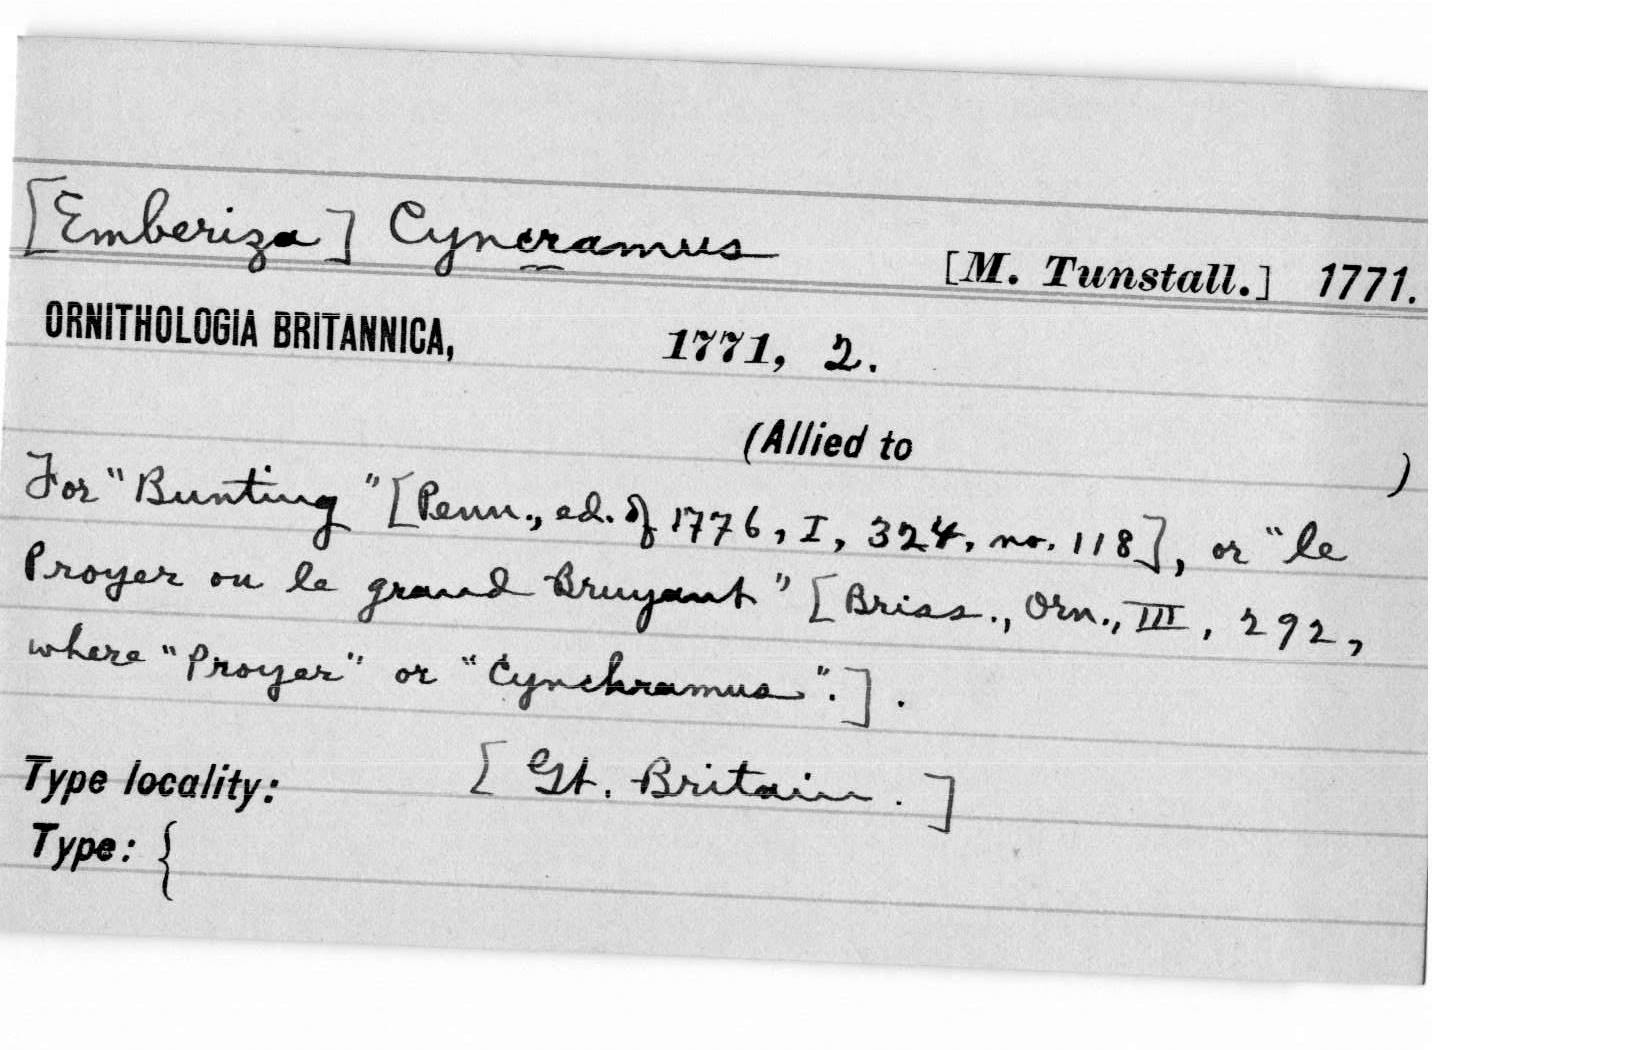 [Emberiza] Cyncramus
[M. Tunstall.] 1771.
ORNITHOLOGIA BRITANNICA, 1771, 2.
(Allied to )
For "Bunting" [Penn., ed. of 1776, I, 324, no. 118], or "le
Proyer ou le grand Bruyant" [Briss., Orn., III, 292,
where "Proyer" or "Cynchramus".].
Type locality: [Gt. Britain.]
Type: {